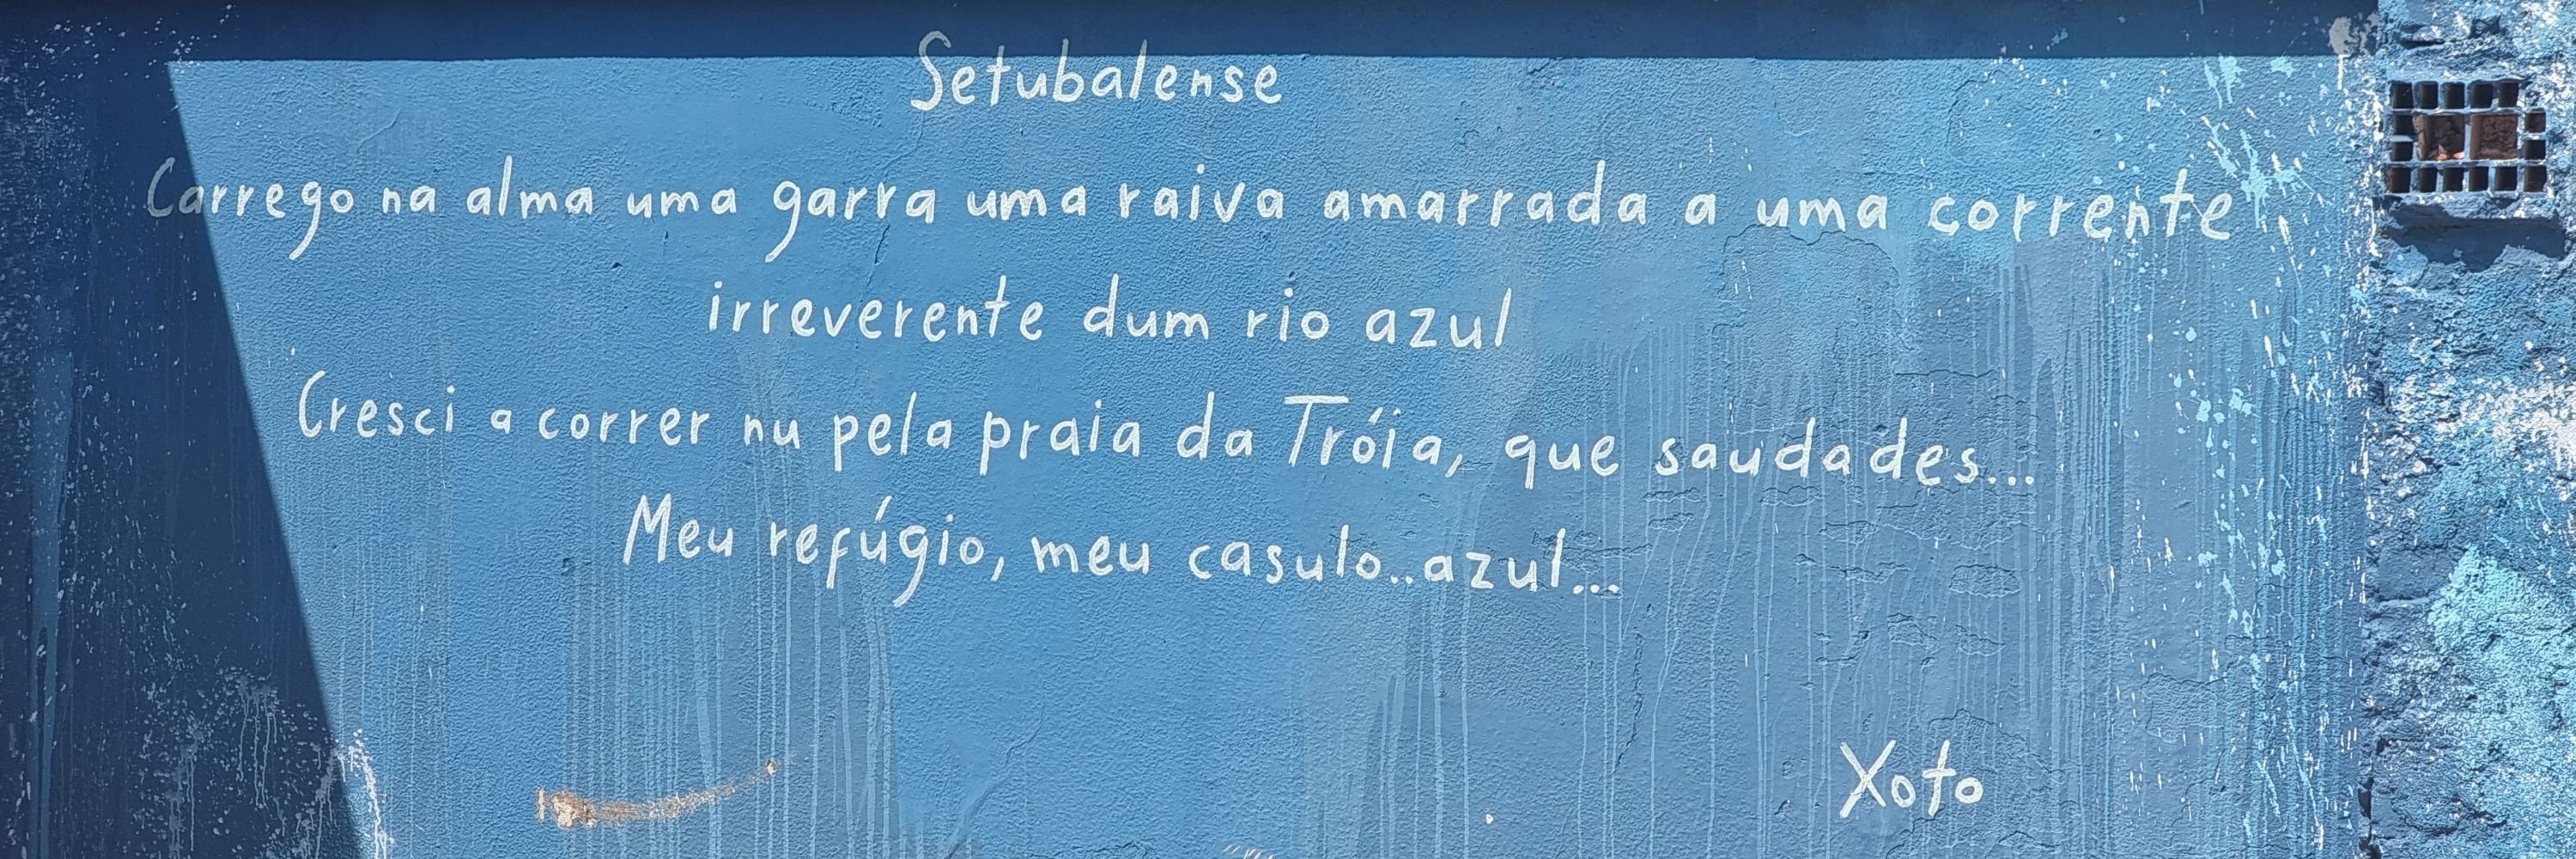 Setubalense
Carrego na alma uma garra uma raiva amarrada a uma corrente
irreverente dum rio azul
Cresci a correr nu pela praia da Tróia, que saudades...
Meu refúgio, meu casulo..azul...
Xoto